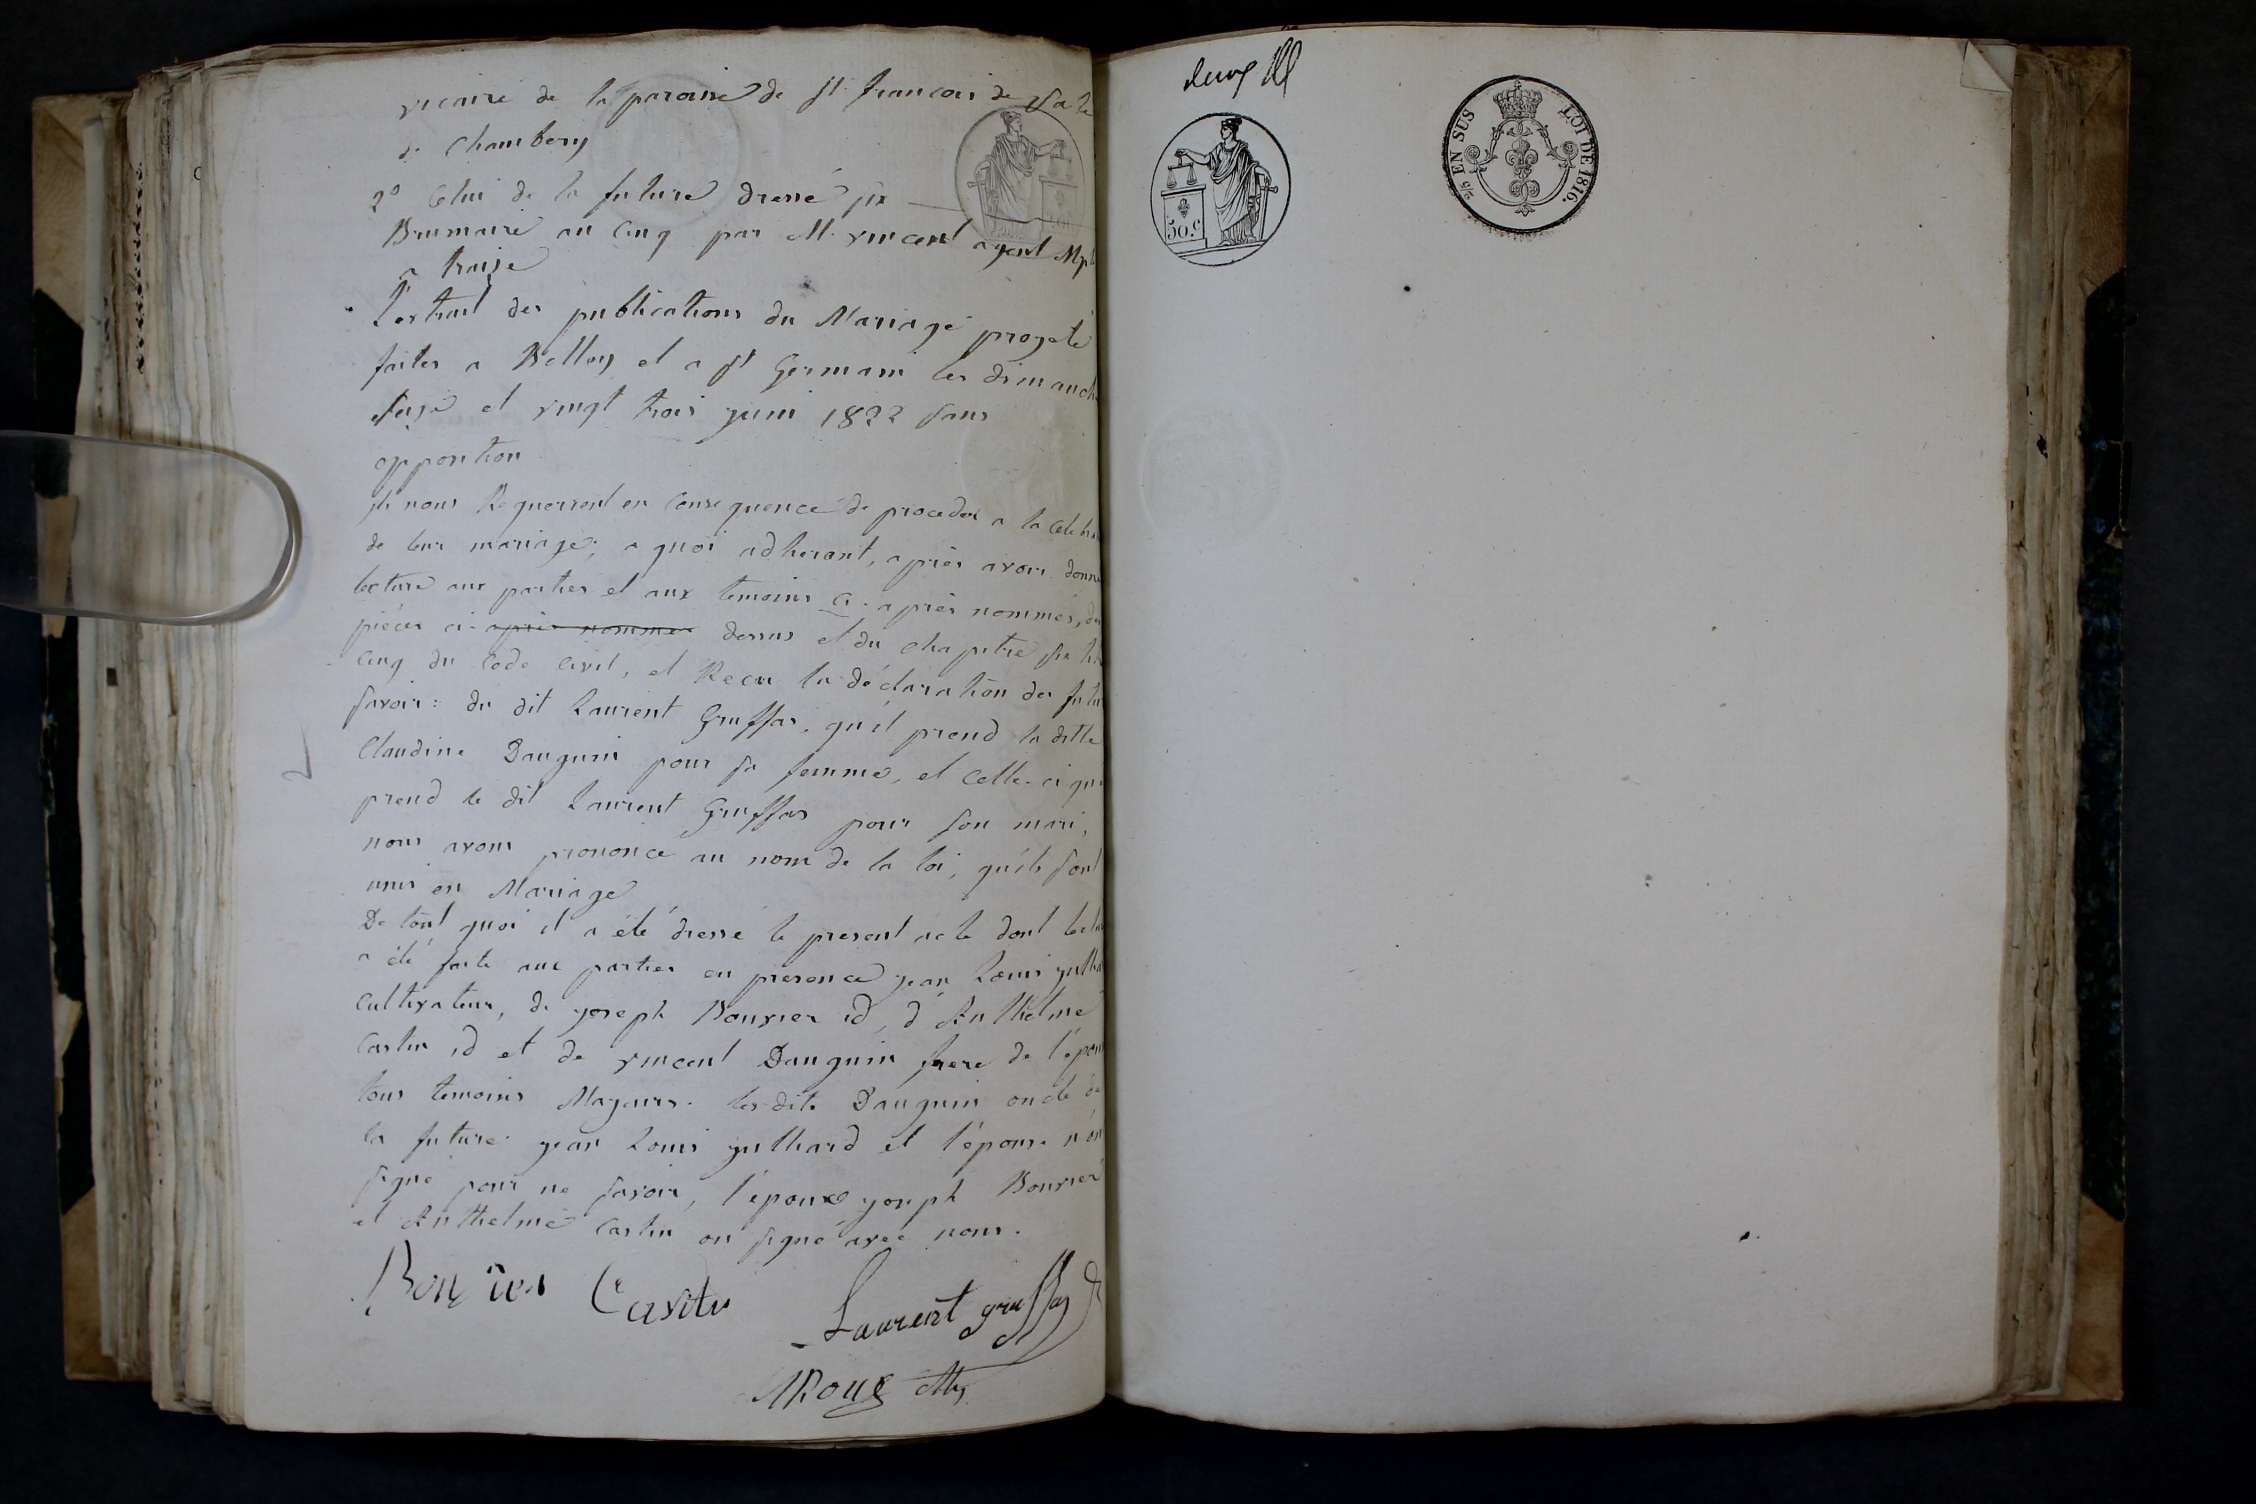 vicaire de la paroisse de St francois de Sale
de Chambery
2° Celui de la future dressé six
Brumaire an Cinq par M. vincent agent Mpl
a traize
L'extrait des publications du Mariage projeté
faites a Belley et a St Germain les dimanche
seize et vingt trois juin 1822 sans
opposition
ils nous Requerront en Consequence de proceder a la Celebra
de leur mariage; a quoi adherant, après avoir donné
lecture aux parties et aux temoins Ci-après nommés, des
pièces ci-après nommer dessus et du chapitre six
Cinq du Code Civil, et Recu la déclaration des futu
savoir: du dit Laurent Gruffas, qu'il prend la ditte
Claudine Dauguin pour sa femme, et Celle-ci qu
prend le dit Laurent Gruffas pour son mari,
nous avons prononcé au nom de la loi, qu'ils sont
unis en Mariage
De tout quoi il a été dressé le present acte dont lectu
a été faite aux parties en presence jean Louis
Cultivateur, de joseph Bouvier id, d'Anthelme
Castin id et de vincent Dauguin frere de l'épou
tous temoins Majeurs. les-dits Dauguin oncle de
la future jean Louis julliard et l'épouse n'on
signé pour ne savoir, l'epoux joseph Bouvier
et Anthelme Castin on signé avec nous.
Bouvier Castin
Laurent gruffas
Roux
deux
50.C
2/5 EN SUS LOI DE 1816.